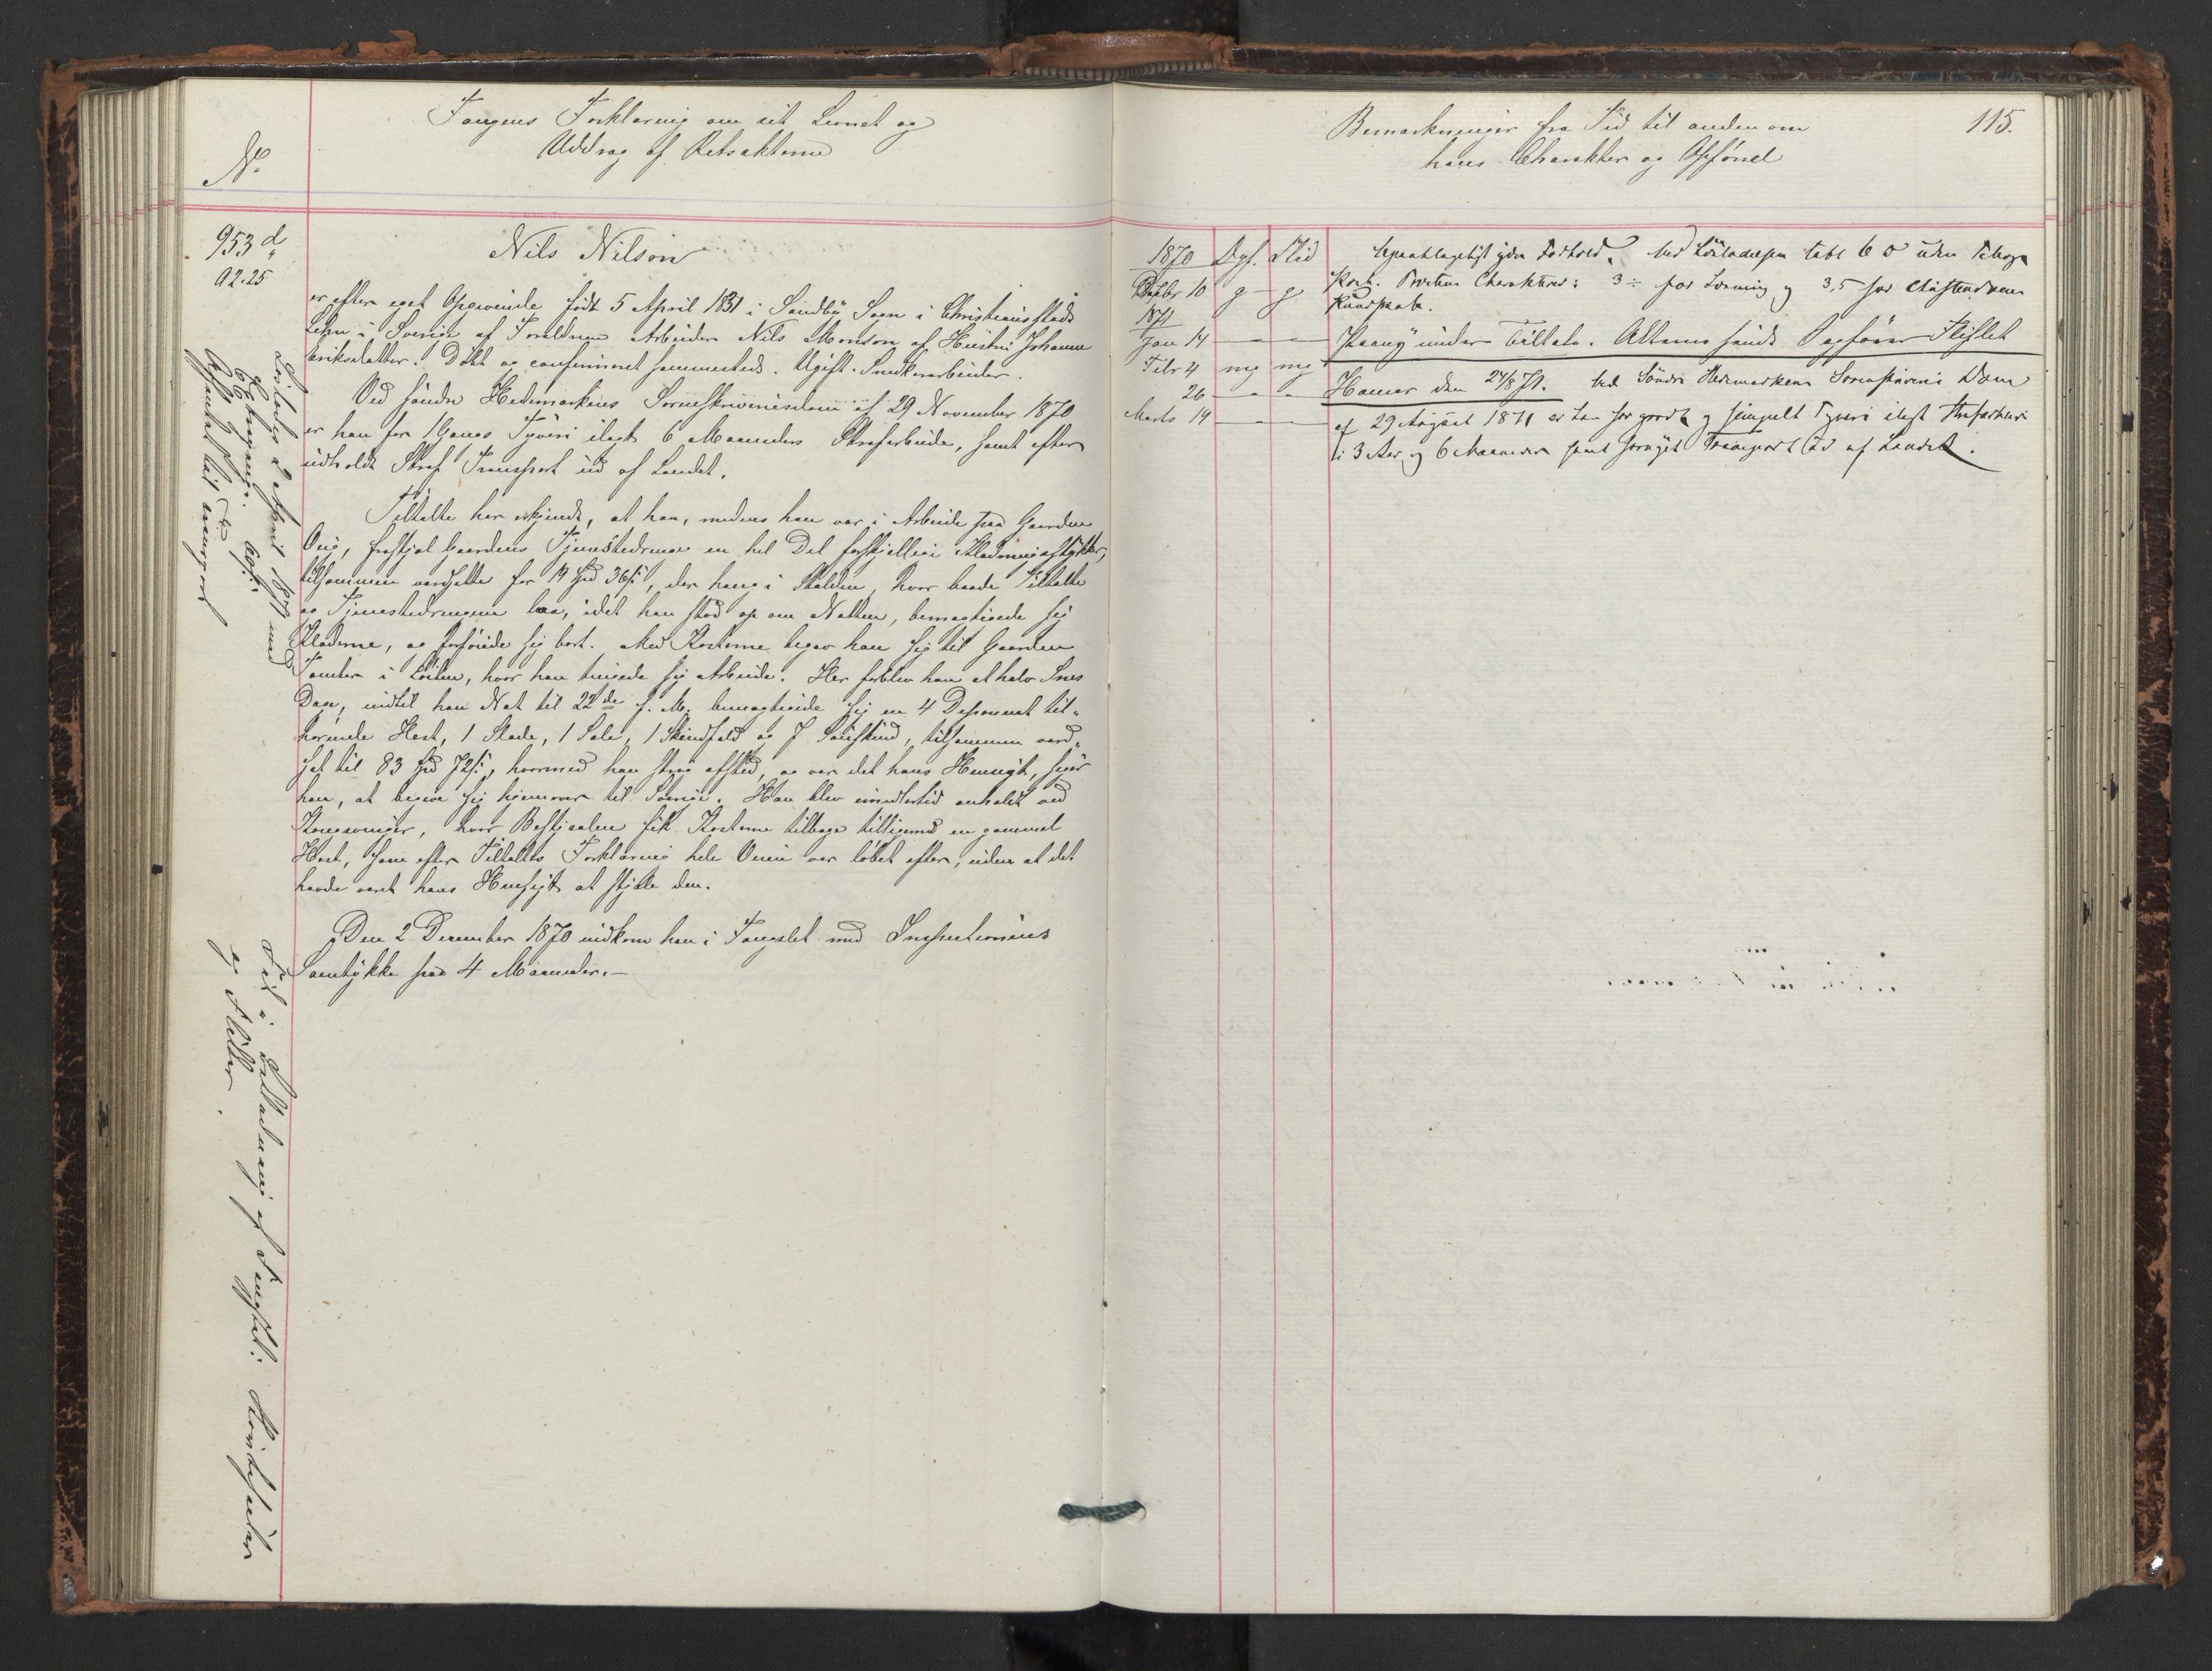 Fangens Forklaring om sit Levnet og
Uddrag af Retsakterne
No.
953 d
92.25
Nils Nilson
er efter eget Opgivende født 5 April 1831 i Sandby Sogn i Christiansstads
Lehn i Sverige af Forældrene Arbeider Nils Monson og Hustru Johanna
Eriksdatter. Døbt og confirmeret sammesteds. Ugift. Snedkerarbeider.
Ved Søndre Hedemarkens Sorenskriveriesdom af 29 November 1870
er han for 1 Gangs Tyveri ilagt 6 Maaneders Strafarbeide, samt efter
udholdt Straf Transport ud af Landet.
Tiltalte har erkjendt, at han, medens han var i Arbeide paa Gaarden
frastjal Gaardens Tjenestedrenge en hel Del forskjellige Klædningsstykker,
tilsammen værdsatte for 19 Spd 36 s, der hang i Stalden, hvor baade Tiltalte
og Tjenestedrengene laa, idet han stod op om Natten, bemægtigede sig
Klæderne, og forføiede sig bort. Med Kosterne begav han sig til Gaarden
i Løiten, hvor han tingede sig Arbeide. Her forblev han et halv Snes
Dage, indtil han Nat til 22de f. M. bemægtigede sig en 4 Deponent til-
hørende Hest, 1 Slæde, 1 Sele, 1 Skindfeld og 7 Saueskind, tilsammen værd-
sat til 83 Spd 72 s, hvormed han strøg afsted, og var det hans Hensigt, siger
han, at begive sig hjemover til Sverige. Han blev imidlertid anholdt ved
Kongsvinger, hvor Bestjaalne fik Kosterne tilbage tilligemed en gammel
Hest, som efter Tiltaltes Forklaring hele Veien var løbet efter, uden at det
havde været hans Hensigt at stjæle den.
Den 2 December 1870 indkom han i Fængslet med Inspectionens
Samtykke paa 4 Maaneder.—
Løsladt 2 April 1871 med
Afsendt til
Tid i
af
og
Bemærkninger fra Tid til anden om
hans Charakter og Opførsel
115.
1870 Opf. Flid
Decbr 10 g - g
1871
Jan 14 — —
Febr 4 mg mg
26 — —
Marts 19 — —
Forhold. Ved Løsladelsen
Charakterer: 3 ÷ for Læsning og 3,5 for Christendoms
Kundskab.
Hamar den 24/8 71. Ved Søndre Hedemarkens Sorenskriveri Dom
af 29 August 1871 er han for grovt og simpelt Tyveri ilagt Strafarbeide
i 3 Aar og 6 Maaneder samt fornyet Transport ud af Landet.